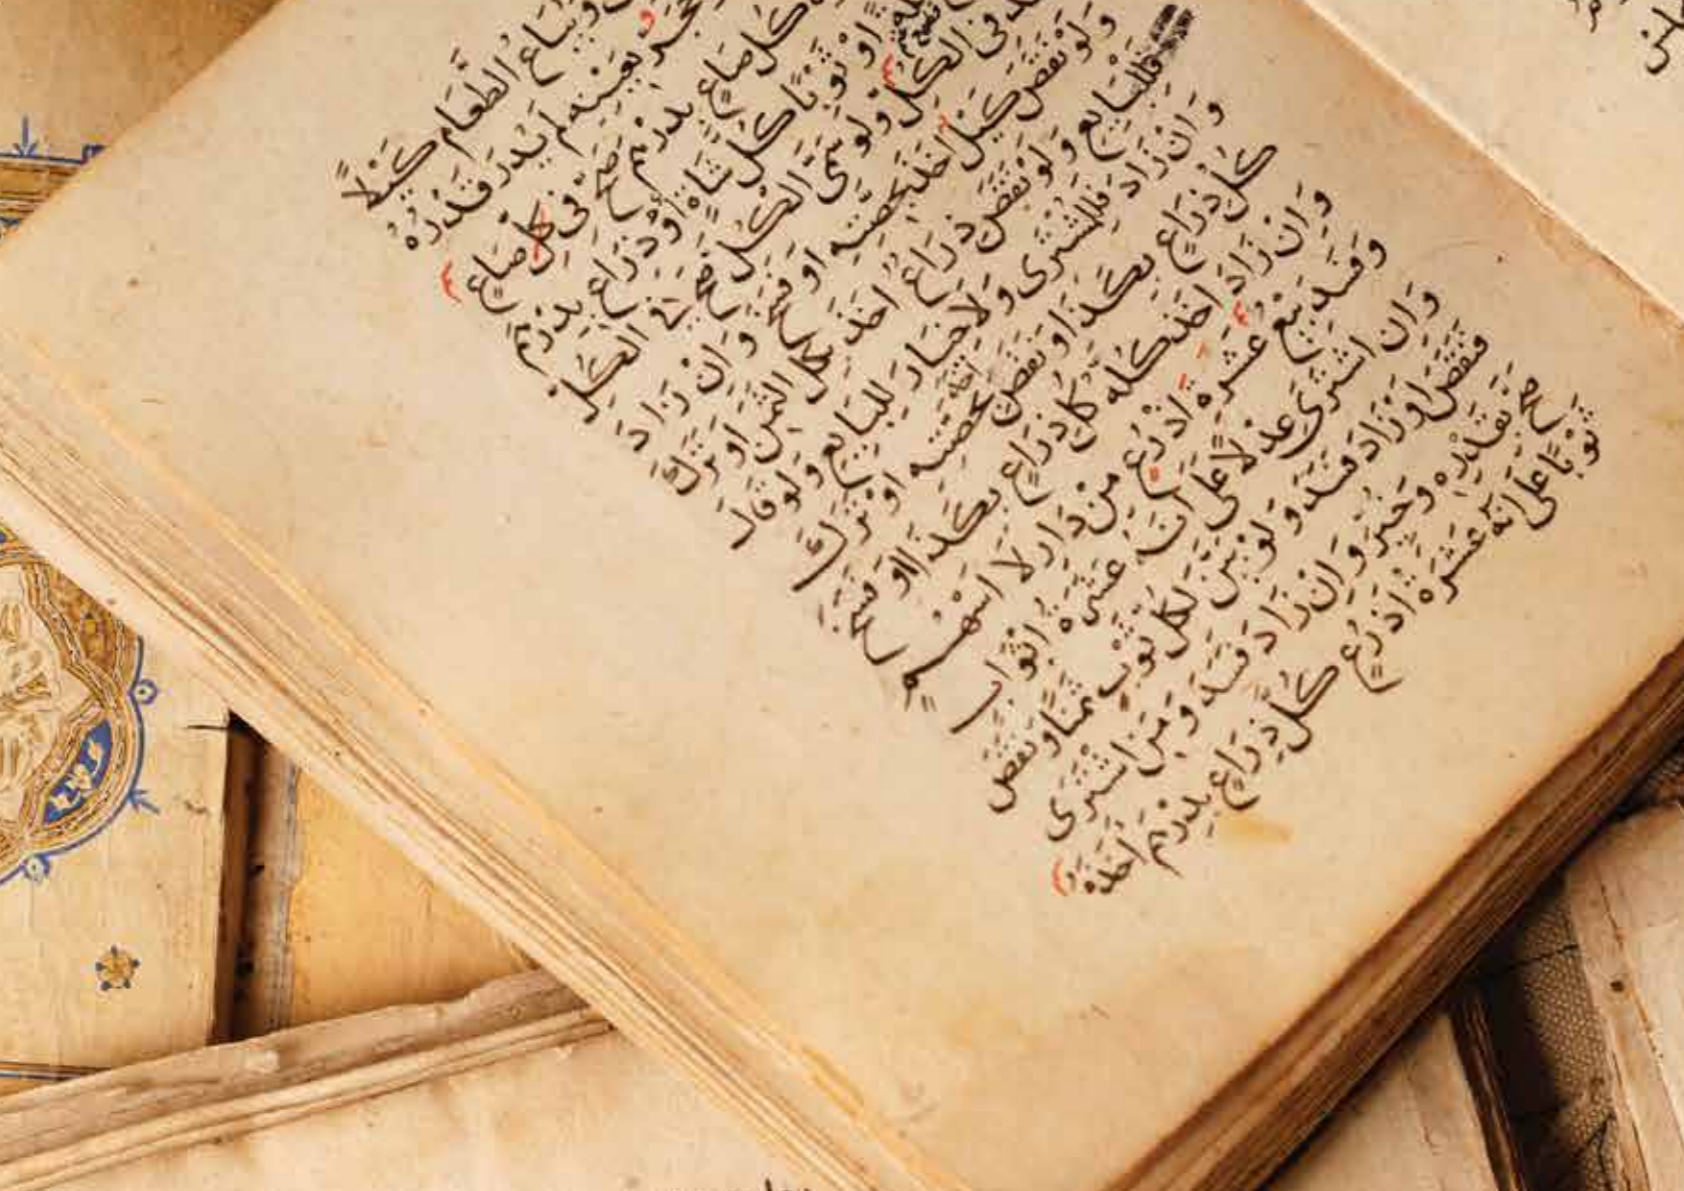 ويباع الطعام كيلا
حجر بعينه لم يدر قدره
كل صاع بدرهم صح في كل صاع
او ثوبا كل شاة او ذراع بدرهم
في الكل ولو سمى الكل صح في الكل
ولو نقص كيل اخذ بحصته او فسخ وان زاد
فللبايع ولو نقص ذراع اخذ بكل الثمن او ترك
وان زاد فللمشترى ولا خيار للبايع ولو قال
كل ذراع بكذا ونقص اخذ بحصته او ترك
وان زاد اخذ كله كل ذراع بكذا او فسخ
وفسد بيع عشرة اذرع من دار لا اسهم
وان اشترى عدلا على انه عشرة اثواب
فنقص او زاد فسد ولو بين لكل ثوب ثمنا ونقص
صح بقدره وخير وان زاد فسد ومن اشترى
ثوبا على انه عشرة اذرع كل ذراع بدرهم اخذه